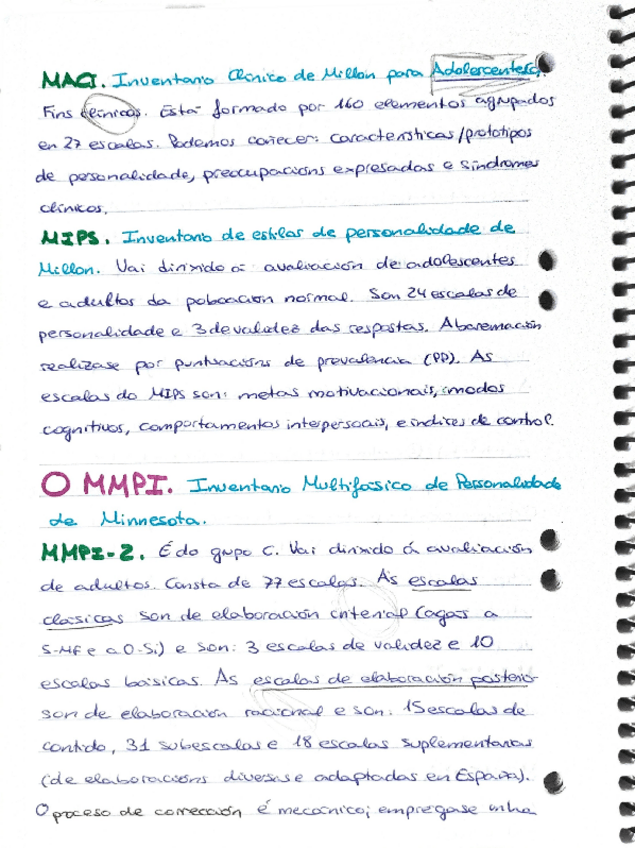 MACI. Inventario Clínico de Millon para Adolescentes.
Fins clínicos. Está formado por 160 elementos agrupados
en 27 escalas. Podemos coñecer: características/prototipos
de personalidade, preocupacións expresadas e síndromes
clínicos.
MIPS. Inventario de estilos de personalidade de
Millon. Vai dirixido á avaliación de adolescentes
e adultos da poboación normal. Son 24 escalas de
personalidade e 3 de validez das respostas. A baremación
realízase por puntuacións de prevalencia (PP). As
escalas do MIPS son: metas motivacionais, modos
cognitivos, comportamentos interpersoais, e índices de control.
O MMPI. Inventario Multifásico de Personalidade
de Minnesota.
MMPI-2. É do grupo C. Vai dirixido á avaliación
de adultos. Consta de 77 escalas. As escalas
clásicas son de elaboración criterial (agás a
5-Mf e a 0-Si) e son: 3 escalas de validez e 10
escalas básicas. As escalas de elaboración posterior
son de elaboración racional e son: 15 escalas de
contido, 31 subescalas e 18 escalas suplementarias
(de elaboracións diversas e adaptadas en España).
O proceso de corrección é mecánico; emprégase unha